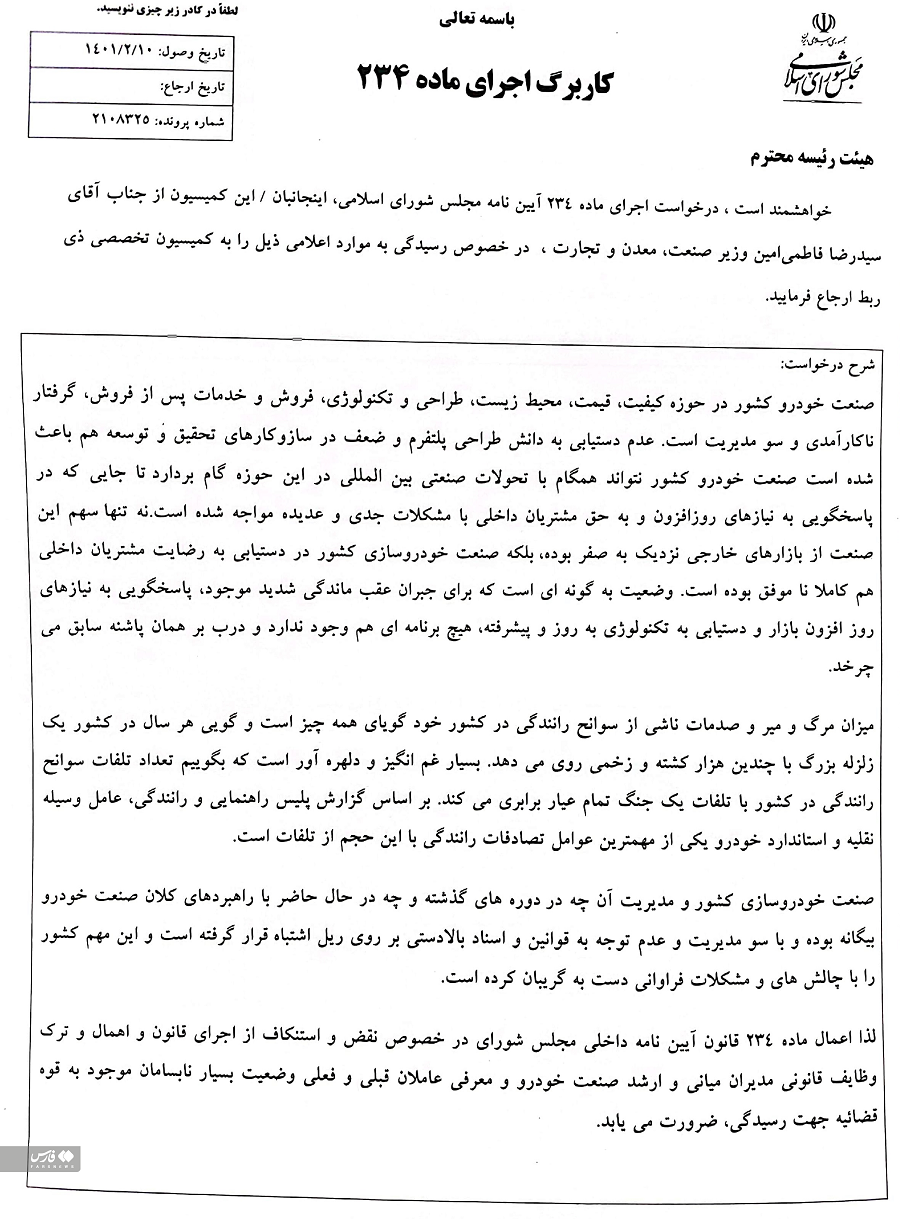 باسمه تعالی
لطفاً در کادر زیر چیزی ننویسید.
جمهوری اسلامی ایران
مجلس شورای اسلامی
کاربرگ اجرای ماده ۲۳۴
تاریخ وصول: ۱۴۰۱/۲/۱۰
تاریخ ارجاع:
شماره پرونده: ۲۱۰۸۳۲۵
هیئت رئیسه محترم
خواهشمند است ، درخواست اجرای ماده ۲۳٤ آیین نامه مجلس شورای اسلامی، اینجانبان / این کمیسیون از جناب آقای
سیدرضا فاطمی‌امین وزیر صنعت، معدن و تجارت ، در خصوص رسیدگی به موارد اعلامی ذیل را به کمیسیون تخصصی ذی
ربط ارجاع فرمایید.
شرح درخواست:
صنعت خودرو کشور در حوزه کیفیت، قیمت، محیط زیست، طراحی و تکنولوژی، فروش و خدمات پس از فروش، گرفتار
ناکارآمدی و سو مدیریت است. عدم دستیابی به دانش طراحی پلتفرم و ضعف در سازوکارهای تحقیق و توسعه هم باعث
شده است صنعت خودرو کشور نتواند همگام با تحولات صنعتی بین المللی در این حوزه گام بردارد تا جایی که در
پاسخگویی به نیازهای روزافزون و به حق مشتریان داخلی با مشکلات جدی و عدیده مواجه شده است.نه تنها سهم این
صنعت از بازارهای خارجی نزدیک به صفر بوده، بلکه صنعت خودروسازی کشور در دستیابی به رضایت مشتریان داخلی
هم کاملا نا موفق بوده است. وضعیت به گونه ای است که برای جبران عقب ماندگی شدید موجود، پاسخگویی به نیازهای
روز افزون بازار و دستیابی به تکنولوژی به روز و پیشرفته، هیچ برنامه ای هم وجود ندارد و درب بر همان پاشنه سابق می
چرخد.
میزان مرگ و میر و صدمات ناشی از سوانح رانندگی در کشور خود گویای همه چیز است و گویی هر سال در کشور یک
زلزله بزرگ با چندین هزار کشته و زخمی روی می دهد. بسیار غم انگیز و دلهره آور است که بگوییم تعداد تلفات سوانح
رانندگی در کشور با تلفات یک جنگ تمام عیار برابری می کند. بر اساس گزارش پلیس راهنمایی و رانندگی، عامل وسیله
نقلیه و استاندارد خودرو یکی از مهمترین عوامل تصادفات رانندگی با این حجم از تلفات است.
صنعت خودروسازی کشور و مدیریت آن چه در دوره های گذشته و چه در حال حاضر با راهبردهای کلان صنعت خودرو
بیگانه بوده و با سو مدیریت و عدم توجه به قوانین و اسناد بالادستی بر روی ریل اشتباه قرار گرفته است و این مهم کشور
را با چالش های و مشکلات فراوانی دست به گریبان کرده است.
لذا اعمال ماده ۲۳٤ قانون آیین نامه داخلی مجلس شورای در خصوص نقض و استنکاف از اجرای قانون و اهمال و ترک
وظایف قانونی مدیران میانی و ارشد صنعت خودرو و معرفی عاملان قبلی و فعلی وضعیت بسیار نابسامان موجود به قوه
قضائیه جهت رسیدگی، ضرورت می یابد.
فارس
FARSNEWS